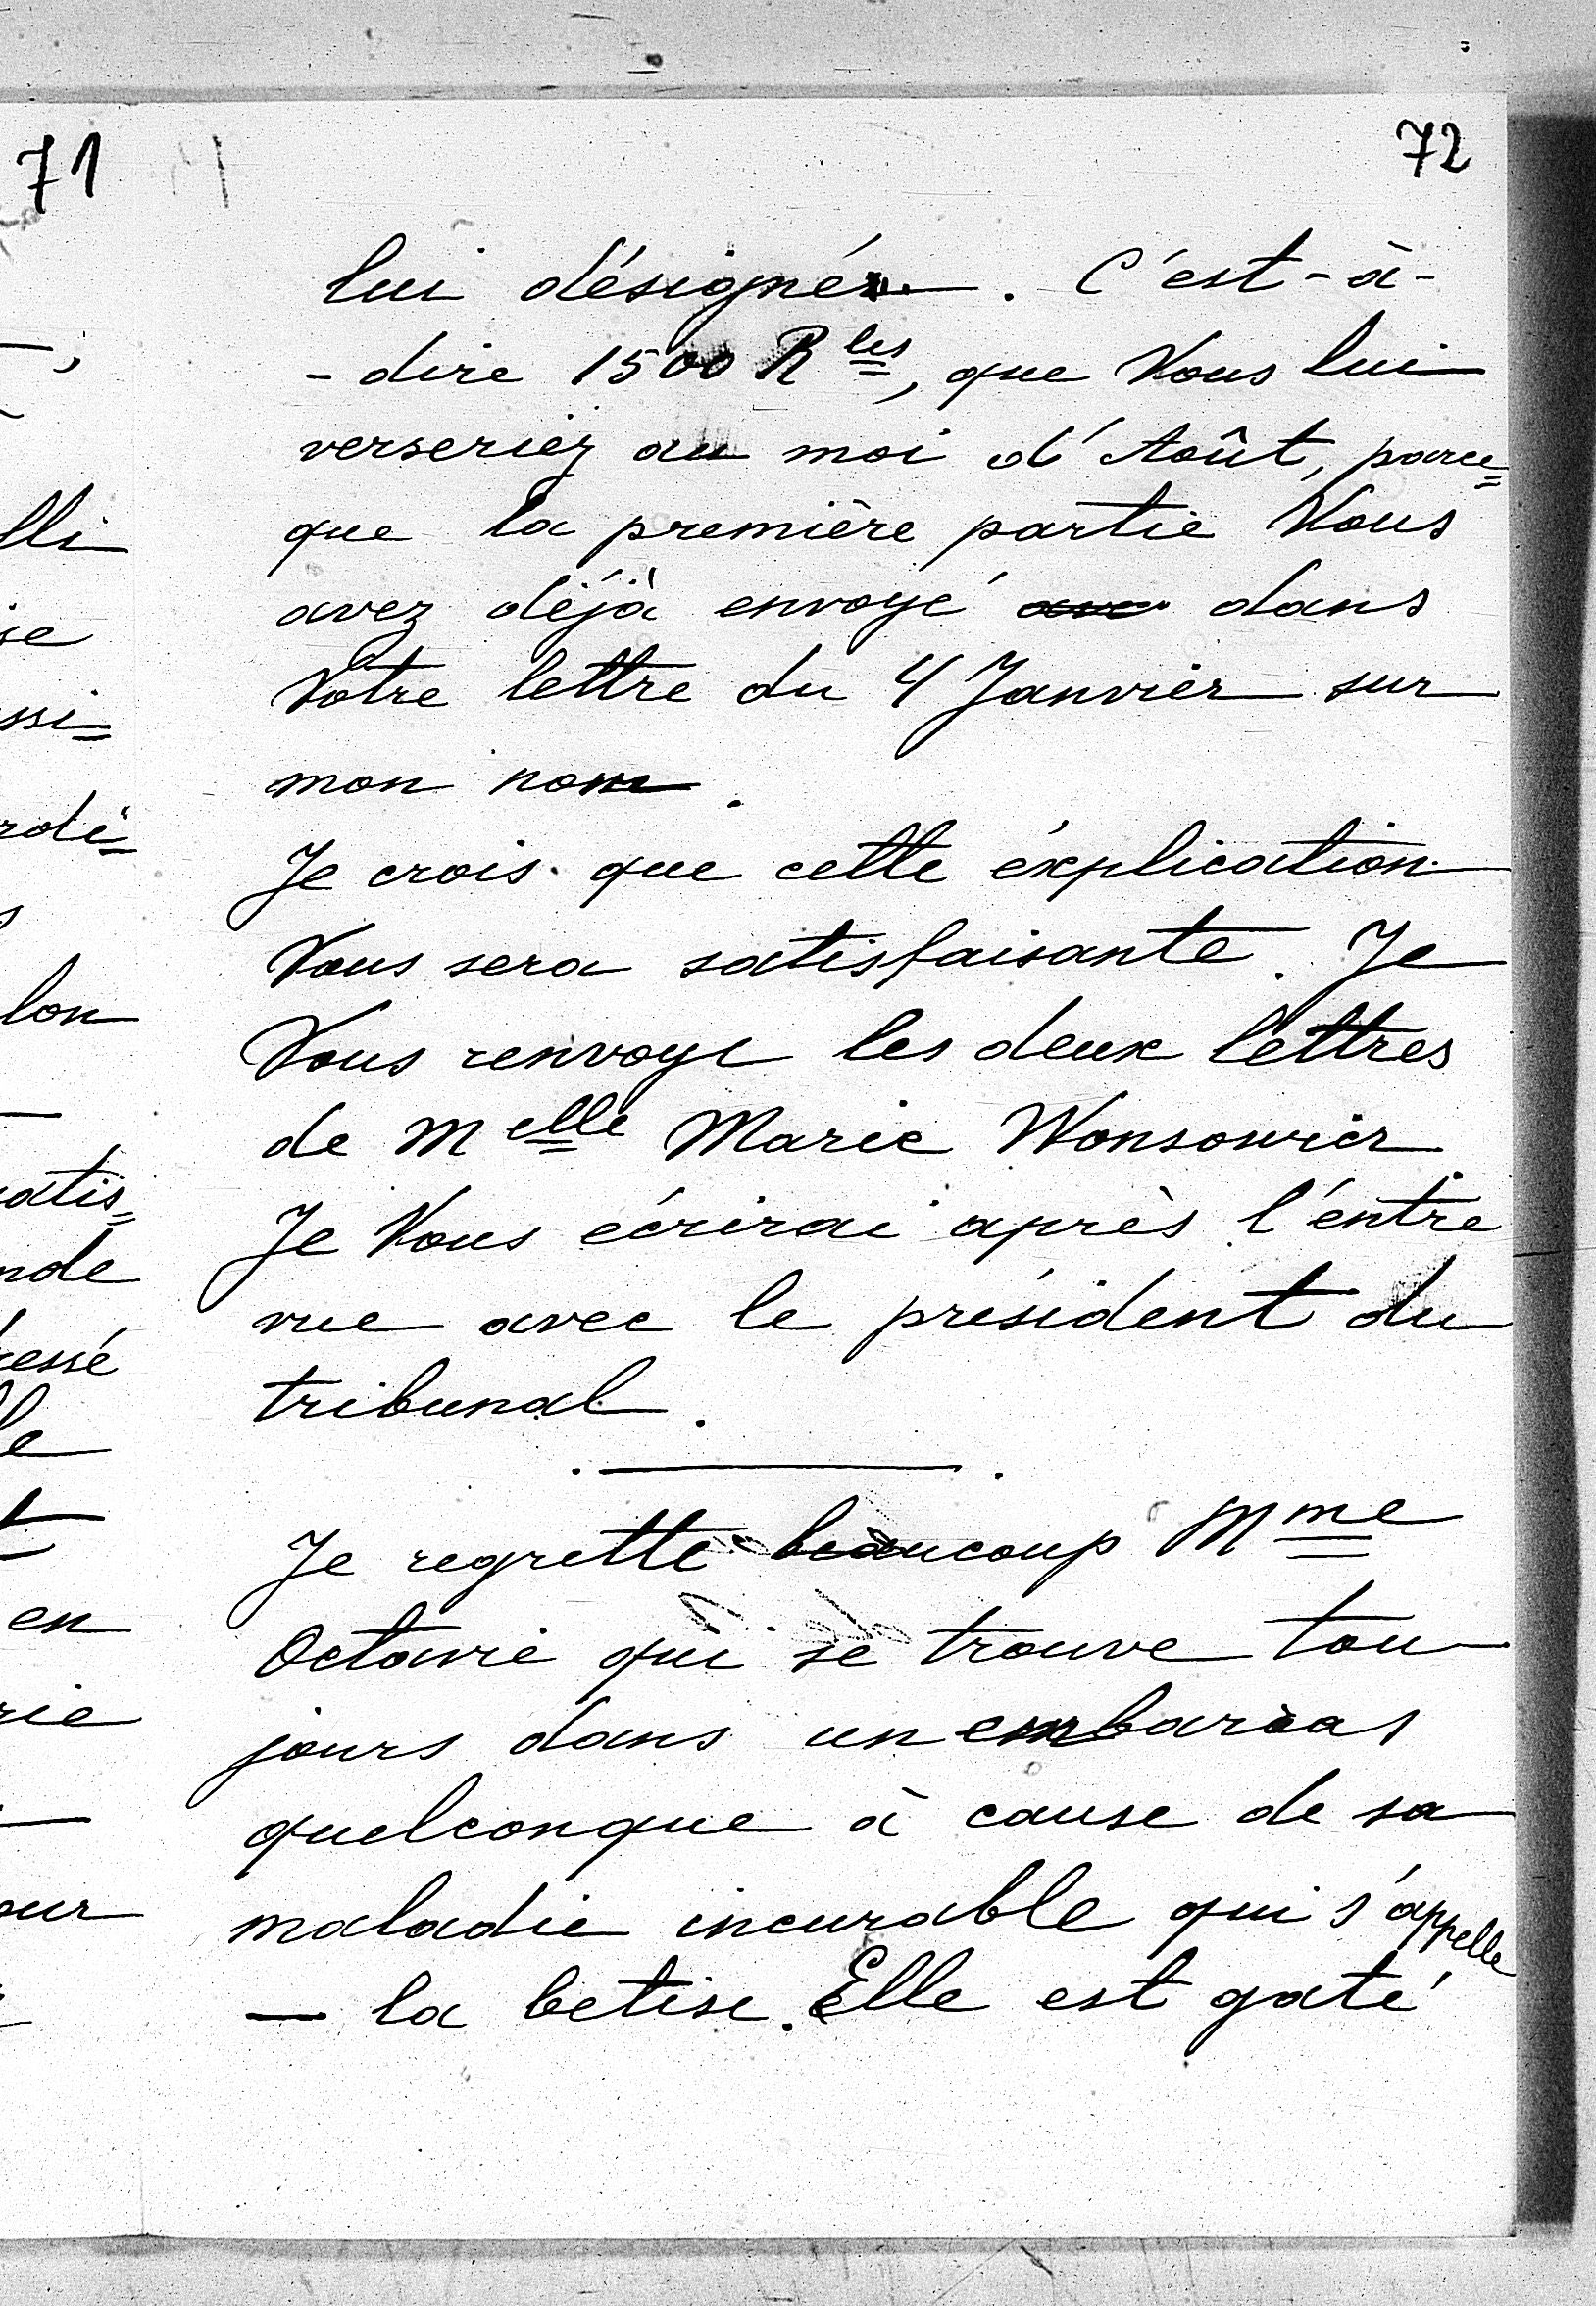 71
72
lui désigné. C'est-à-
-dire 1500 Rles, que Vous lui
verseriez au moi d'Août, parce=
que la première partie Vous
avez déjà envoyé dans
Votre lettre du 4 Janvier sur
mon nom.
Je crois que cette éxplication
Vous sera satisfaisante. Je
Vous renvoye les deux lettres
de Melle Marie Wonsowier.
Je Vous écrirai après l'entre
vue avec le président du
tribunal.
Je regrette beaucoup Mme
Octavie qui se trouve tou
jours dans un embarras
quelconque à cause de sa
maladie incurable qui s'appelle
— la betise. Elle est gaté
lli
se
ssi=
rdi=
s
lon
satis=
nde
essé
le
t
en
rie
our